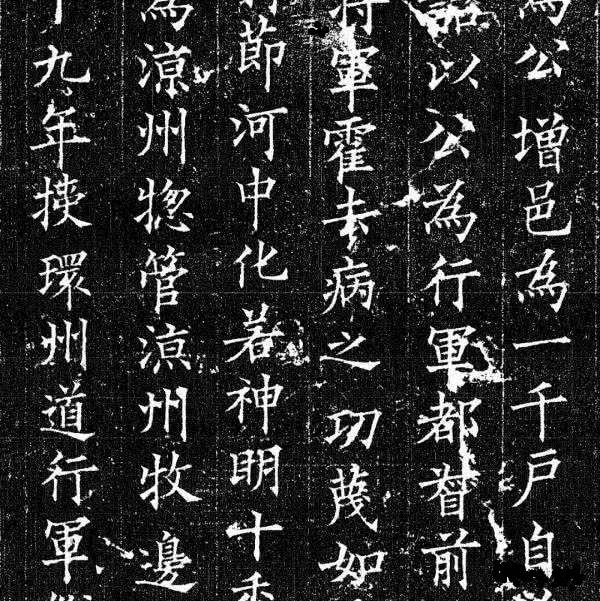 為公增邑為一千戸自
詔以公為行軍都督前
将軍霍去病之功蔑如
節河中化若神明十
為涼州惣管涼州牧邊
十九年授環州道行軍